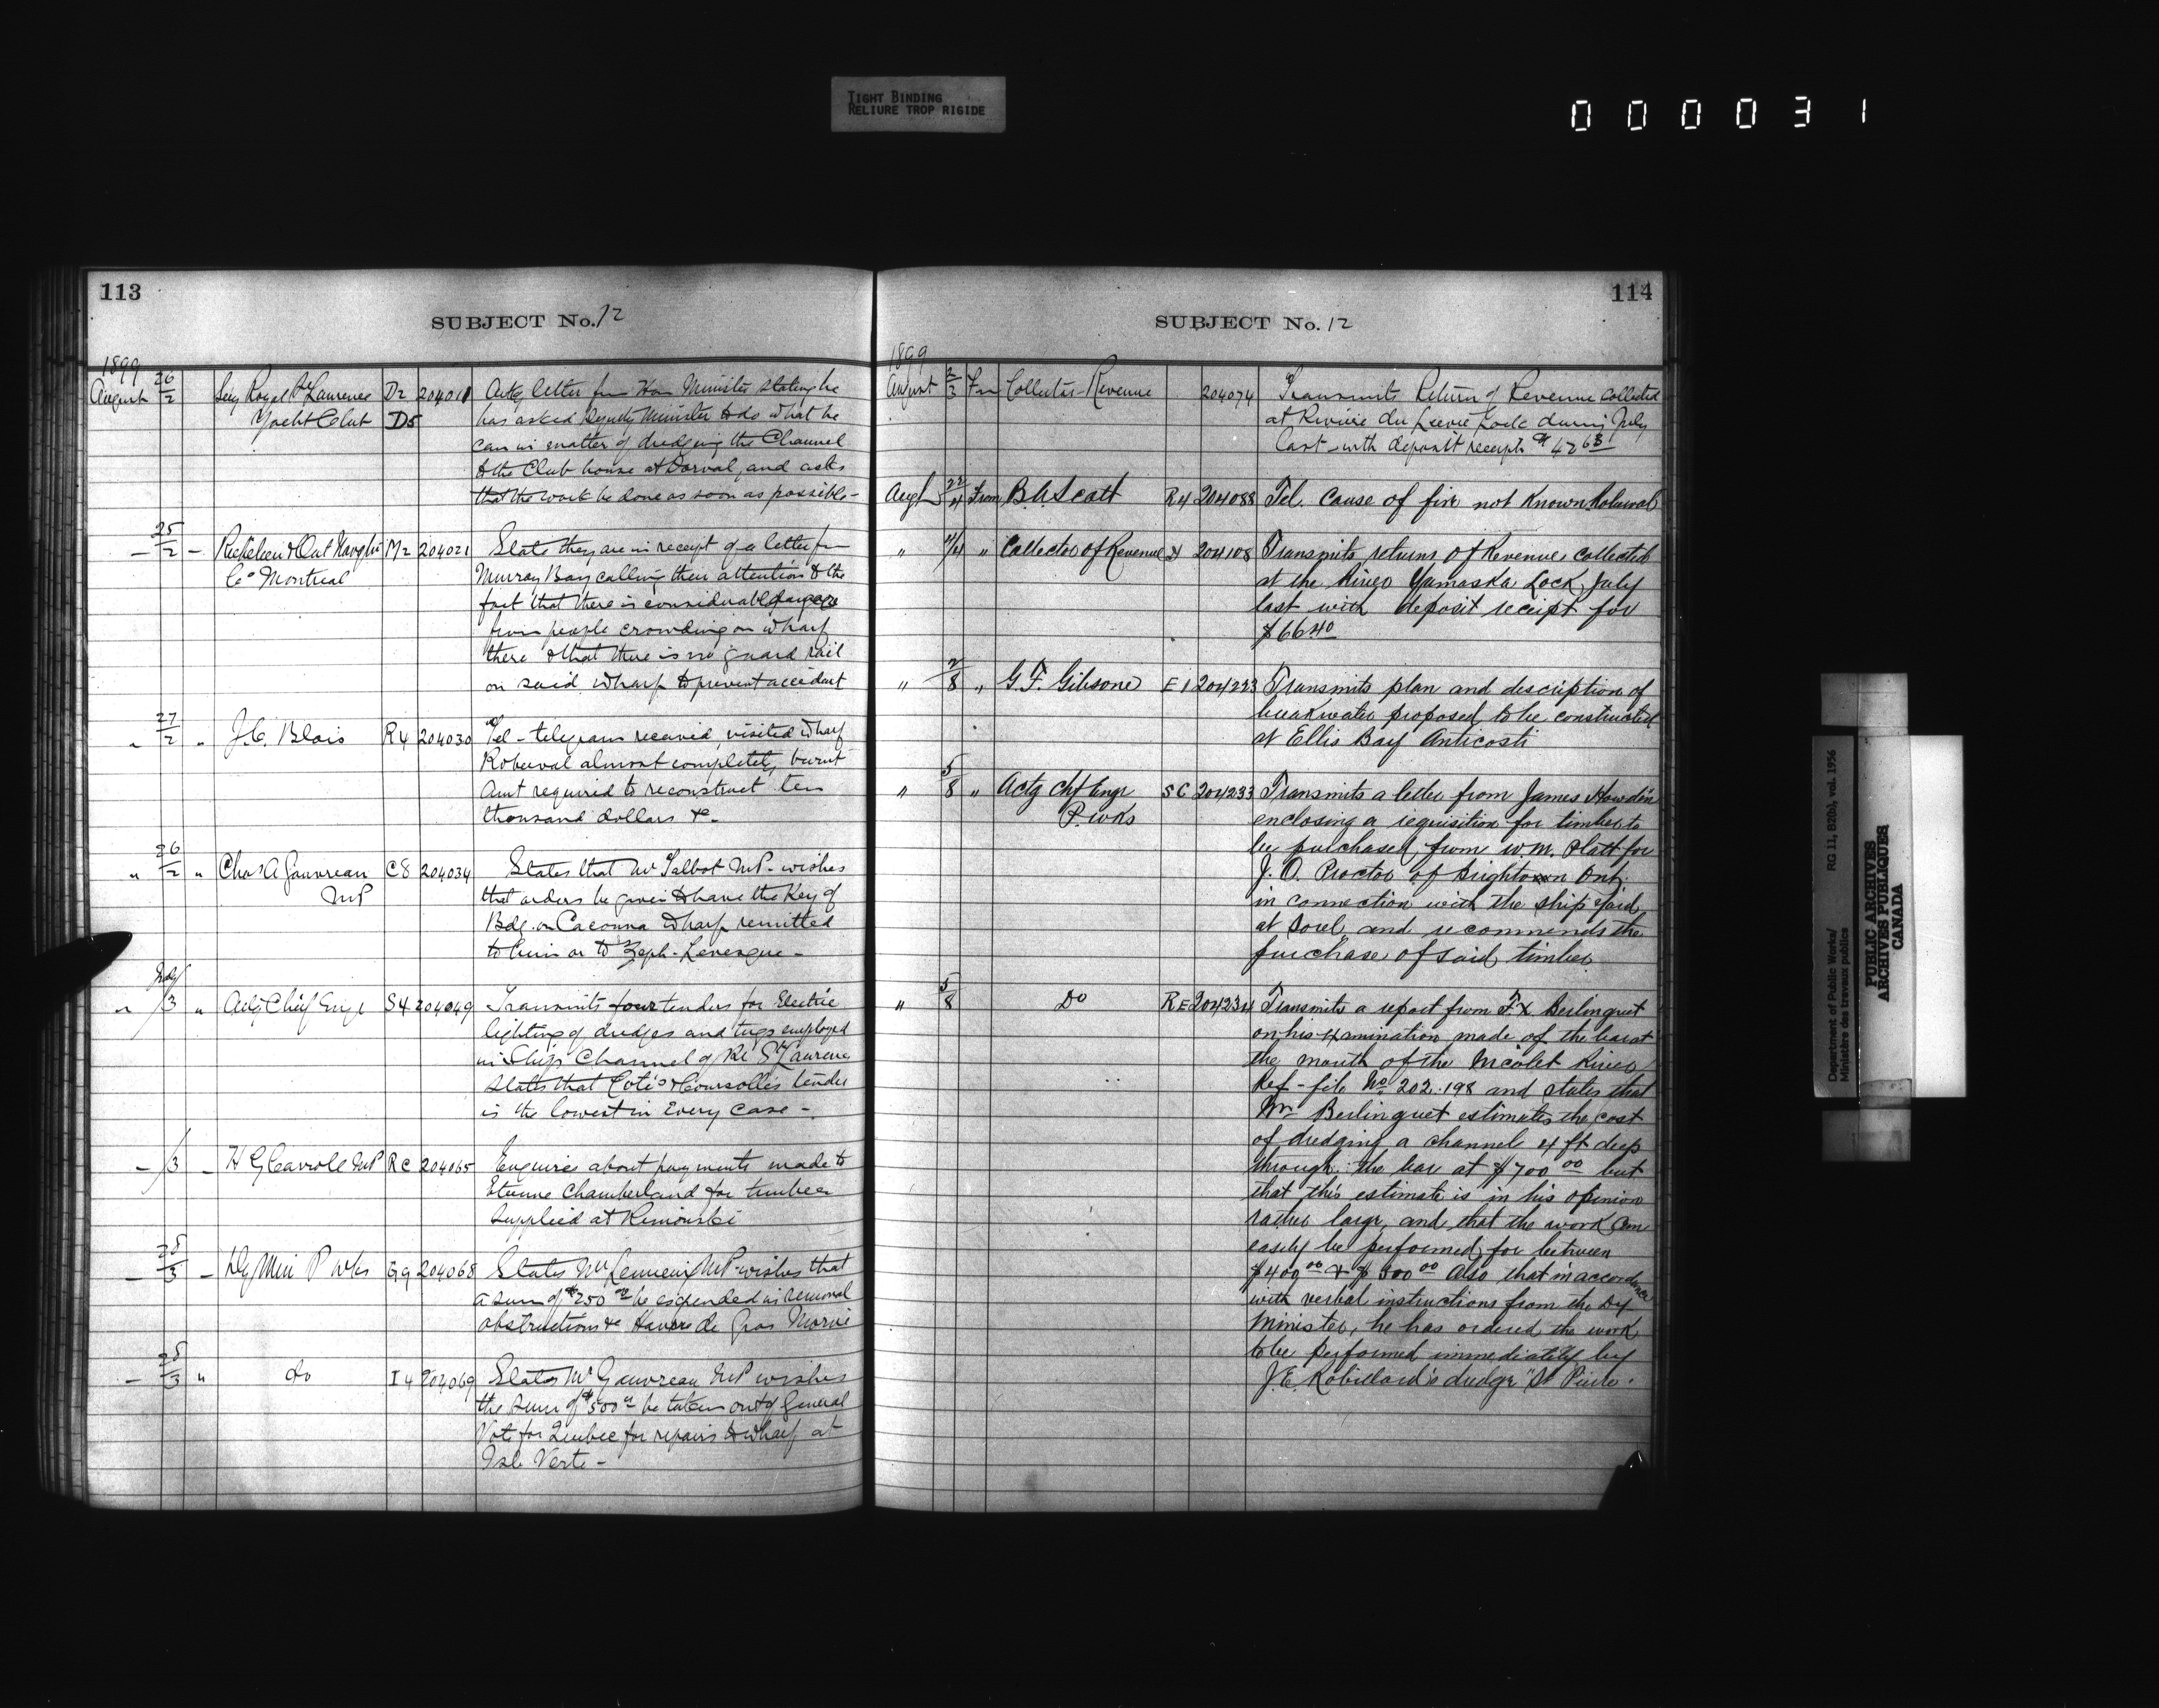 TIGHT BINDING
RELIURE TROP RIGIDE
000031
113
SUBJECT No. 12
1899
August 26/2 Secy Royal St Lawrence D2 204011 Ackg letter fm Hon Minister stating he
Yacht Club D5 has asked Deputy Minister to do what he
can in matter of dredging the Channel
to the Club house at Dorval, and asks
that the work be done as soon as possible -
- 25/2 - Richelieu & Ont Navgtn M2 204021 States they are in receipt of a letter fm
Co Montreal Murray Bay calling their attention to the
fact that there is considerable danger
from people crowding on wharf
there & that there is no guard rail
on said wharf to prevent accident
" 27/2 " J.C. Blais R4 204030 Tel - telegram received, visited wharf
Roberval almost completely burnt
Amt required to reconstruct ten
thousand dollars &c -
" 26/2 " Chas A Gauvreau C8 204034 States that Mr Talbot MP - wishes
MP that orders be given to have the Key of
Bdg. on Cacouna Wharf remitted
to him or to Zeph - Levesque -
" /3 " Actg Chief Engr S4 204049 Transmits four tenders for Electric
lighting of dredges and tugs employed
in Ship Channel of Rr St Lawrence
states that Coté & Coursolles tender
is the lowest in Every case -
- /3 - H G Carroll MP RC 204065 Enquires about payments made to
Etienne Chamberland for timber
supplied at Rimouski
- 28/3 - Dy Min P Wks G9 204068 States Mr Lemieux MP wishes that
a sum of $250 00 be expended in removal
obstructions &c Havre de Gros Morne
- 28/3 " do I4 204069 States Mr Gauvreau MP wishes
the sum of $500 00 be taken out of General
Vote for Quebec for repairs to wharf at
Isle Verte -
114
SUBJECT No. 12
1899
August 2/3 Fm Collector Revenue 204074 Transmits Return of Revenue collected
at Rivière du Lievre Lock during July
last with deposit receipt $42 63
Augt 22/4 From B.A. Scott R4 204088 Tel. Cause of fire not known Roberval
" /4 " Collector of Revenue 204108 Transmits returns of Revenue collected
at the River Yamaska Lock, July
last with deposit receipt for
$66 40
" 2/8 " G.F. Gibsone E1 204223 Transmits plan and description of
breakwater proposed to be constructed
at Ellis Bay Anticosti
" 5/8 " Actg Chf Engr SC 204233 Transmits a letter from James Howden
P. Wks enclosing a requisition for timber to
be purchased from W.M. Platt for
J.O. Proctor of Brighton Ont.
in connection with the ship yard
at Sorel, and recommends the
purchase of said timber
" 5/8 Do RE 204234 Transmits a report from F.X. Berlinguet
on his examination made of the bar at
the mouth of the Nicolet River
Ref - file No 202.198 and states that
Mr Berlinguet estimates the cost
of dredging a channel 4 ft deep
through the bar at $700 00 but
that this estimate is in his opinion
rather large, and that the work can
easily be performed for between
$400 00 & $500 00 Also that in accordance
with verbal instructions from the Dy
Minister, he has ordered the work
to be performed immediately by
J.E. Robillard's dredge "St Pierre.
Department of Public Works/ RG 11, B2(b), vol. 1956
Ministère des travaux publics
PUBLIC ARCHIVES
ARCHIVES PUBLIQUES
CANADA